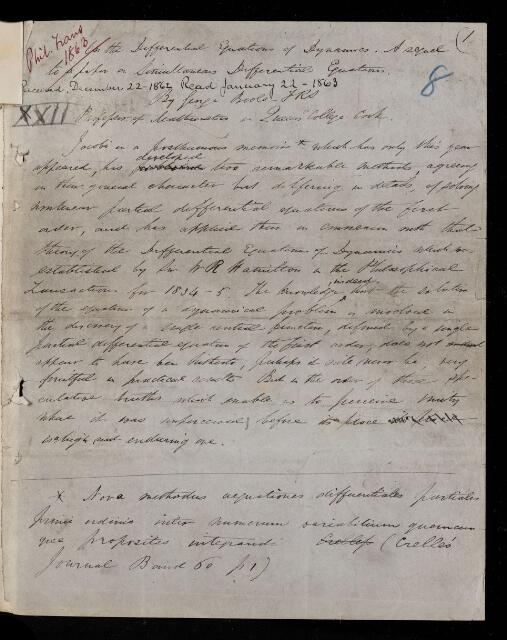 Phil. Trans
1863
(1
On the Differential Equations of Dynamics. A sequel
to a paper on Simultaneous Differential Equations.
8
Received December 22 - 1862 Read January 22 - 1863
By George Boole F.R.S
XXII
Professor of Mathematics in Queen's College Cork.
Jacobi in a posthumous memoir x which has only this year
developed
appeared, has two remarkable methods, agreeing
in their general character but differing in details, of solving
nonlinear partial differential equations of the first
order, and has applied them in connexion with that
theory of the Differential Equations of Dynamics which was
established by Sir W R Hamilton in the Philosophical
Transactions for 1834-5. The knowledge indeed that the solution
of the equations of a dynamical problem is involved in
the discovery of a single central function, defined by a single
partial differential equation of the first order, does not
appear to have been hitherto, perhaps it will never be, very
fruitful in practical results. But in the order of those spe-
culative truths which enable us to perceive unity
where it was unperceived before its place is
a high and enduring one.
x Nova methodus aequationes differentiales partiales
primi ordinis inter numerum variabilium quemcun-
que propositas integrandi (Crelle's
Journal Band 60 p 1)